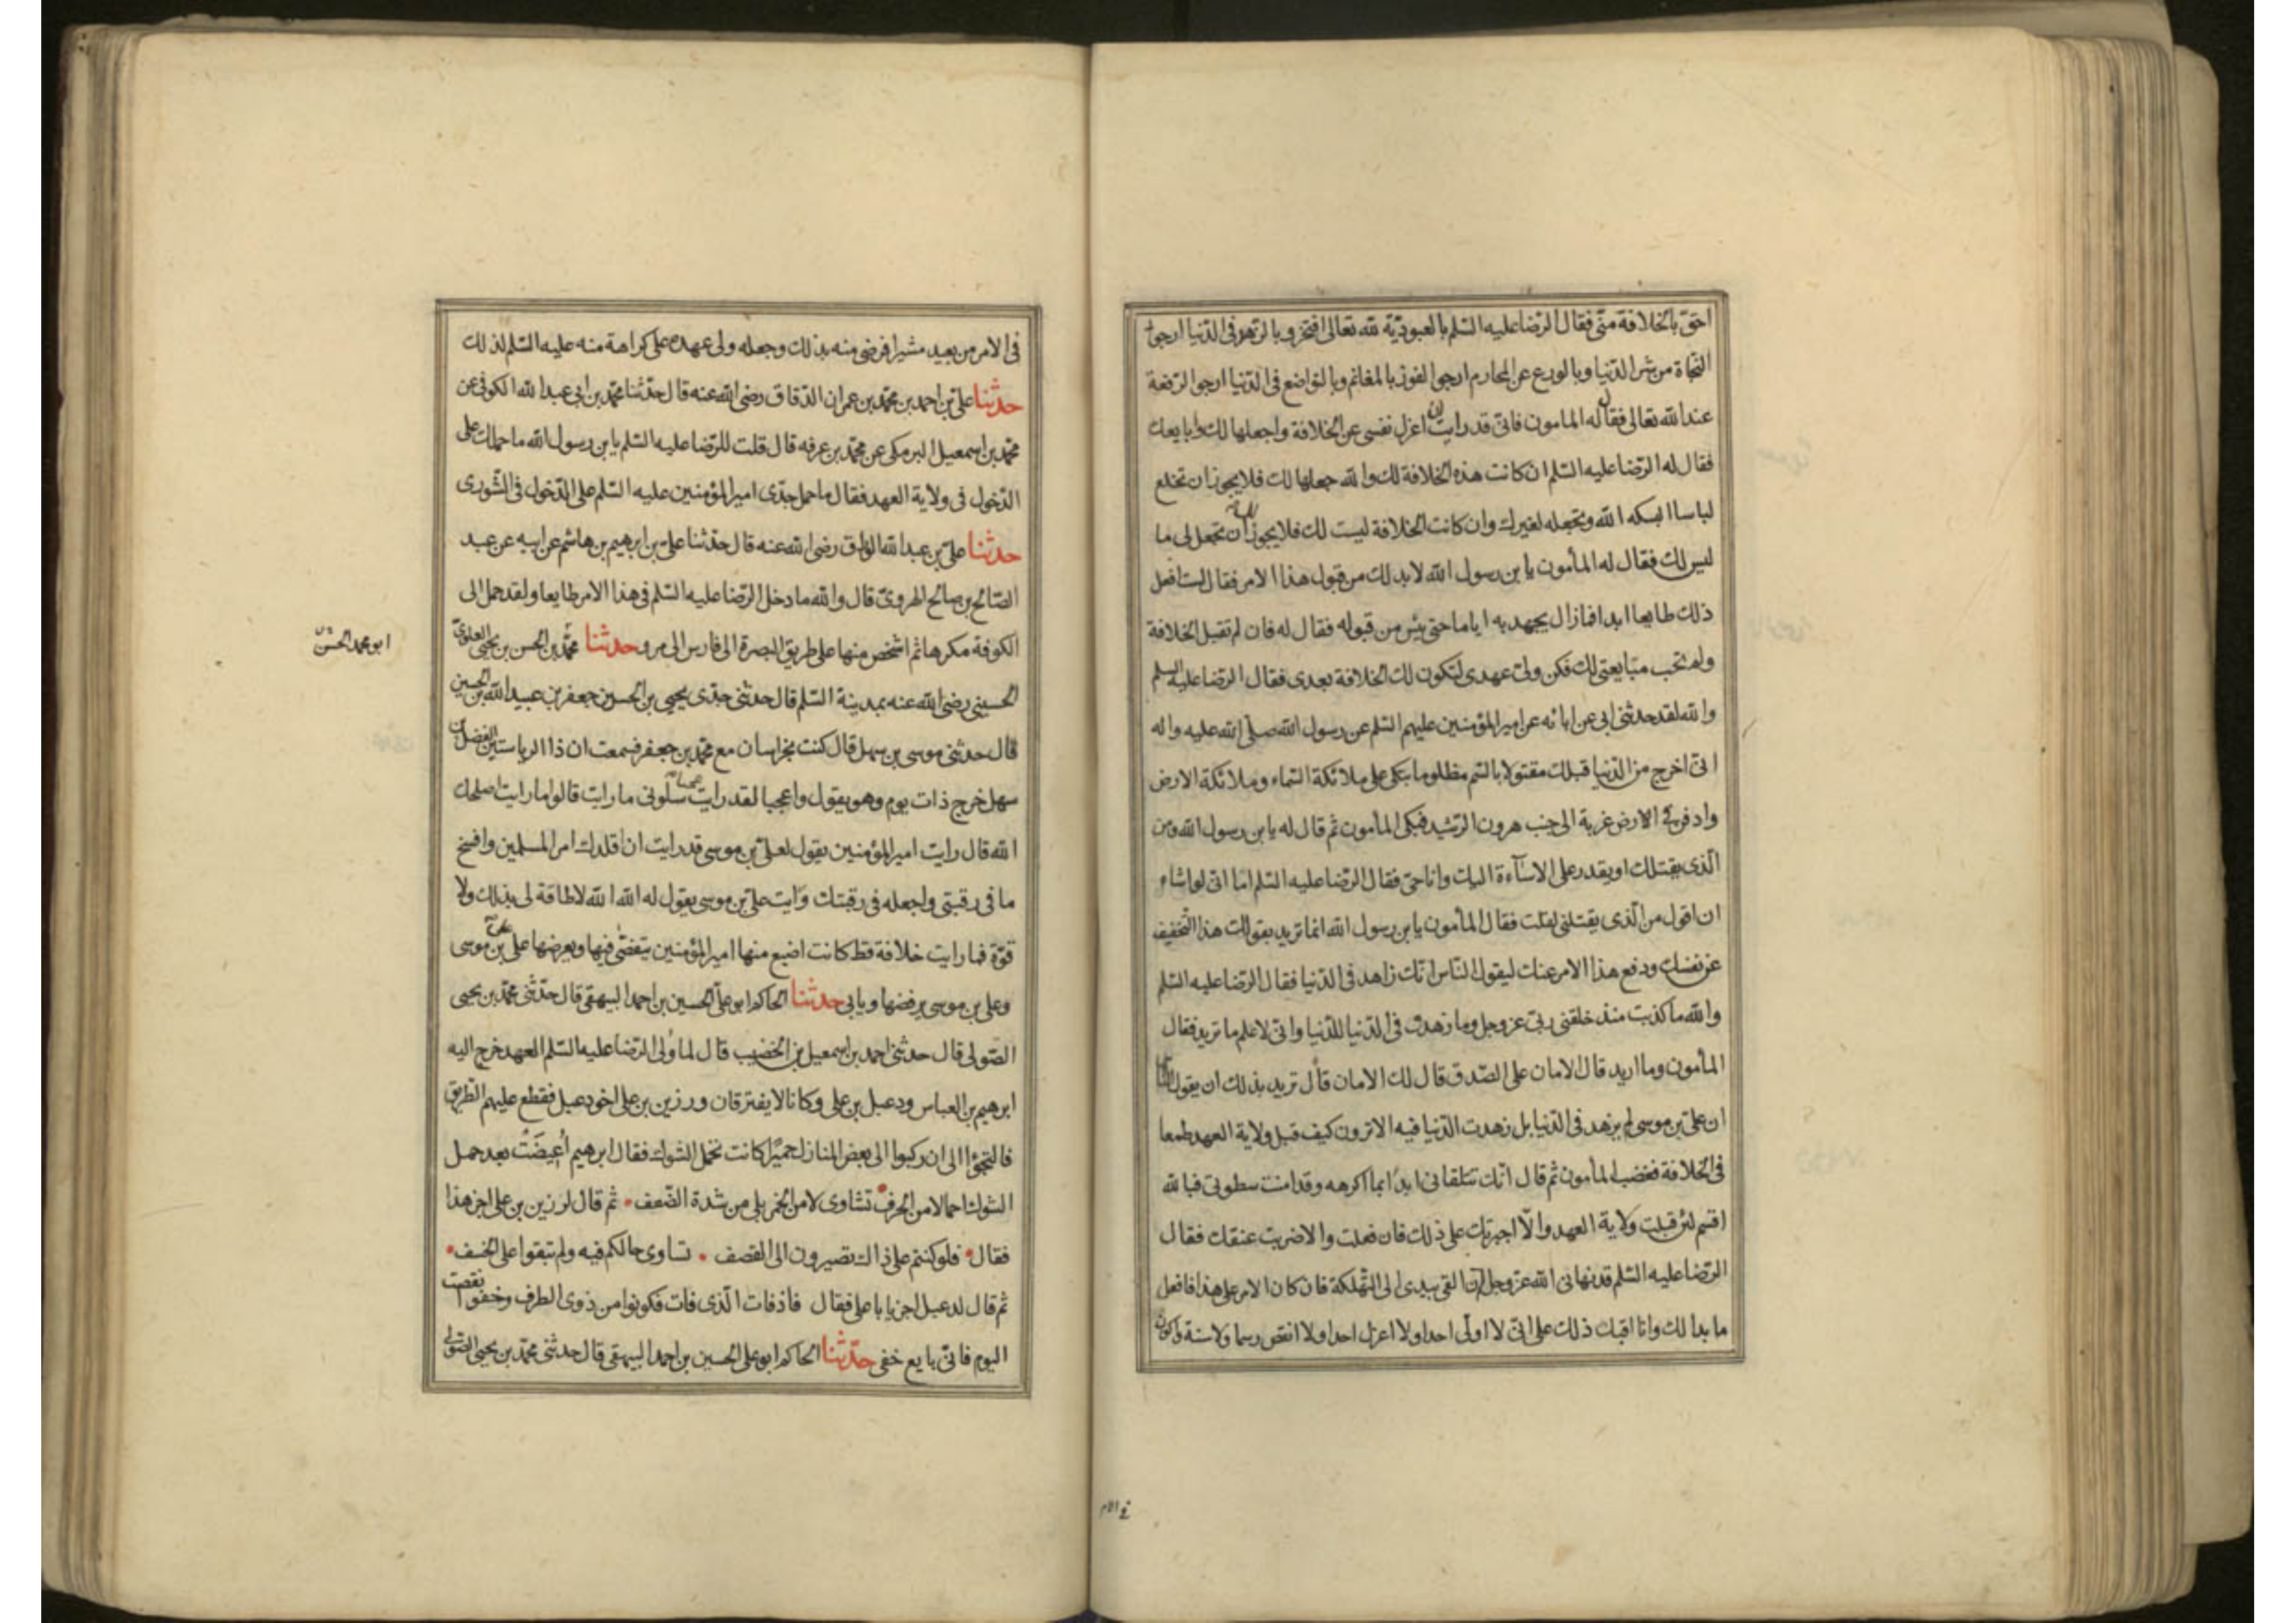 احق بالخلافة منّى فقال الرّضا عليه السّلم بالعبوديّة لله تعالى افتخر وبالزّهد فى الدّنيا ارجوا
النّجاة من شر الدّنيا وبالورع عن المحارم ارجوا الفوز بالمغانم وبالتواضع فى الدّنيا ارجوا الرّفعة
عند الله تعالى فقال له المامون فانّى قد رايت ان اعزل نفسى عن الخلافة واجعلها لك وابايعك
فقال له الرّضا عليه السّلم ان كانت هذه الخلافة لك والله جعلها لك فلا يجوز ان تخلع
لباسا البسكه الله وتجعله لغيرك وان كانت الخلافة ليست لك فلا يجوز لك ان تجعل لى ما
ليس لك فقال له المأمون يا بن رسول الله لا بد لك من قبول هذا الامر فقال لست افعل
ذلك طايعا ابدا فمازال يجهد به اياما حتى يئس من قبوله فقال له فان لم تقبل الخلافة
ولم تحب مبايعتى لك فكن ولىّ عهدى لتكون لك الخلافة بعدى فقال الرّضا عليه السلم
والله لقد حدثنى ابى عن ابائه عن امير المؤمنين عليهم السّلم عن رسول الله صلّى الله عليه واله
انّى اخرج من الدّنيا قبلك مقتولا بالسّم مظلوما تبكى علىّ ملائكة السّماء وملائكة الارض
وادفن فى الارض غربة الى جنب هرون الرّشيد فبكى المأمون ثم قال له يا بن رسول الله ومن
الّذى يقتلك او يقدر على الاساءة اليك وانا حىّ فقال الرّضا عليه السّلم اما انّى لو اشاء
ان اقول من الّذى يقتلنى لقلت فقال المأمون يا بن رسول الله انما تريد بقولك هذا التّخفيف
عن نفسك ودفع هذا الامر عنك ليقول النّاس انّك زاهد فى الدّنيا فقال الرّضا عليه السّلم
والله ما كذبت منذ خلقنى ربّى عز وجل وما زهدت فى الدّنيا للدّنيا وانّى لاعلم ما تريد فقال
المأمون وما اريد قال الامان على الصّدق قال لك الامان قال تريد بذلك ان يقول النّاس
ان علىّ بن موسى لم يزهد فى الدّنيا بل زهدت الدّنيا فيه الا ترون كيف قبل ولاية العهد طمعا
فى الخلافة فغضب المأمون ثم قال انّك تتلقانى ابدا بما اكرهه وقد امنت سطوتى فبالله
اقسم لئن قبلت ولاية العهد والّا اجبرتك على ذلك فان فعلت والا ضربت عنقك فقال
الرّضا عليه السّلم قد نهانى الله عزّ وجل ان القى بيدى الى التّهلكة فان كان الامر على هذا فافعل
ما بدا لك وانا اقبل ذلك على انّى لا اولّى احدا ولا اعزل احدا ولا انقض رسما ولا سنة واكون
فى الامر من بعيد مشيرا فرضى منه بذلك وجعله ولى عهده على كراهة منه عليه السّلم لذلك
حدثنا علىّ بن احمد بن محمّد بن عمران الدّقاق رضى الله عنه قال حدّثنا محمّد بن ابى عبدالله الكوفى عن
محمّد بن اسمعيل البرمكى عن محمّد بن عرفه قال قلت للرّضا عليه السّلم يا بن رسول الله ما حملك على
الدّخول فى ولاية العهد فقال ما حمل جدّى امير المؤمنين عليه السّلم على الدّخول فى الشّورى
حدثنا علىّ بن عبدالله الورّاق رضى الله عنه قال حدّثنا علىّ بن ابرهيم بن هاشم عن ابيه عن عبد
السّلام بن صالح الهروىّ قال والله ما دخل الرّضا عليه السّلم فى هذا الامر طايعا ولقد حمل الى
الكوفة مكرها ثم اشخص منها على طريق البصرة الى فارس الى مرو حدثنا محمّد بن الحسن بن يحيى العلوىّ
ابو محمد الحسن
الحسينى رضى الله عنه بمدينة السّلم قال حدثنى جدّى يحيى بن الحسن بن جعفر بن عبيدالله بن الحسين
قال حدثنى موسى بن سهل قال كنت بخراسان مع محمّد بن جعفر فسمعت ان ذا الرياستين الفضل بن
سهل خرج ذات يوم وهو يقول واعجبا لقد رايت عجبا سلونى ما رايت قالوا ما رايت اصلحك
الله قال رايت امير المؤمنين يقول لعلىّ بن موسى قد رايت ان اقلدك امر المسلمين وافسخ
ما فى رقبتى واجعله فى رقبتك ورايت علىّ بن موسى يقول له الله الله لا طاقة لى بذلك ولا
قوّة فما رايت خلافة قط كانت اضيع منها امير المؤمنين يتفصّى فيها ويعرضها على علىّ بن موسى
وعلى بن موسى يرفضها ويابى حدثنا الحاكم ابو علىّ الحسين بن احمد البيهقى قال حدّثنى محمّد بن يحيى
الصّولى قال حدثنى احمد بن اسمعيل بن الخضيب قال لما ولى الرّضا عليه السّلم العهد خرج اليه
ابرهيم بن العباس ودعبل بن على وكانا لا يفترقان ورزين بن على اخو دعبل فقطع عليهم الطّريق
فالتجؤا الى ان ركبوا الى بعض المنازل حميرا كانت تحمل الشوك فقال ابرهيم اُعيضَتْ بعد حمل
الشوك احمالا من الحرف نشاوى لا من الخمر بلى من شدة الضّعف ثم قال لرزين بن على اجز هذا
فقال فلو كنتم على ذاك تصيرون الى القصف تساوى حالكم فيه ولم تبقوا على الخسف
ثم قال لدعبل اجز يا باعلى فقال فاذ فات الّذى فات فكونوا من ذوى الظرف وخفوا نقصف
اليوم فانّى بايع خفى حدّثنا الحاكم ابو على الحسين بن احمد البيهقى قال حدثنى محمّد بن يحيى الصّولى